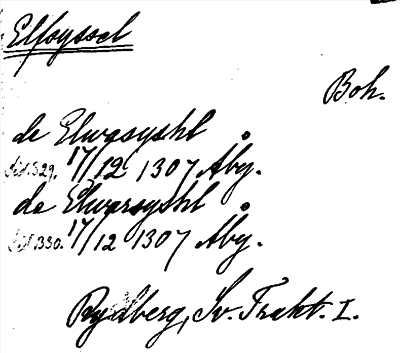 Elfsyssel
Boh.
de Elwasyshl
sid. 329. 17/12 1307 Åby.
de Elwarsyshl
sid. 330. 17/12 1307 Åby.
Rydberg, Sv. Trakt. I.